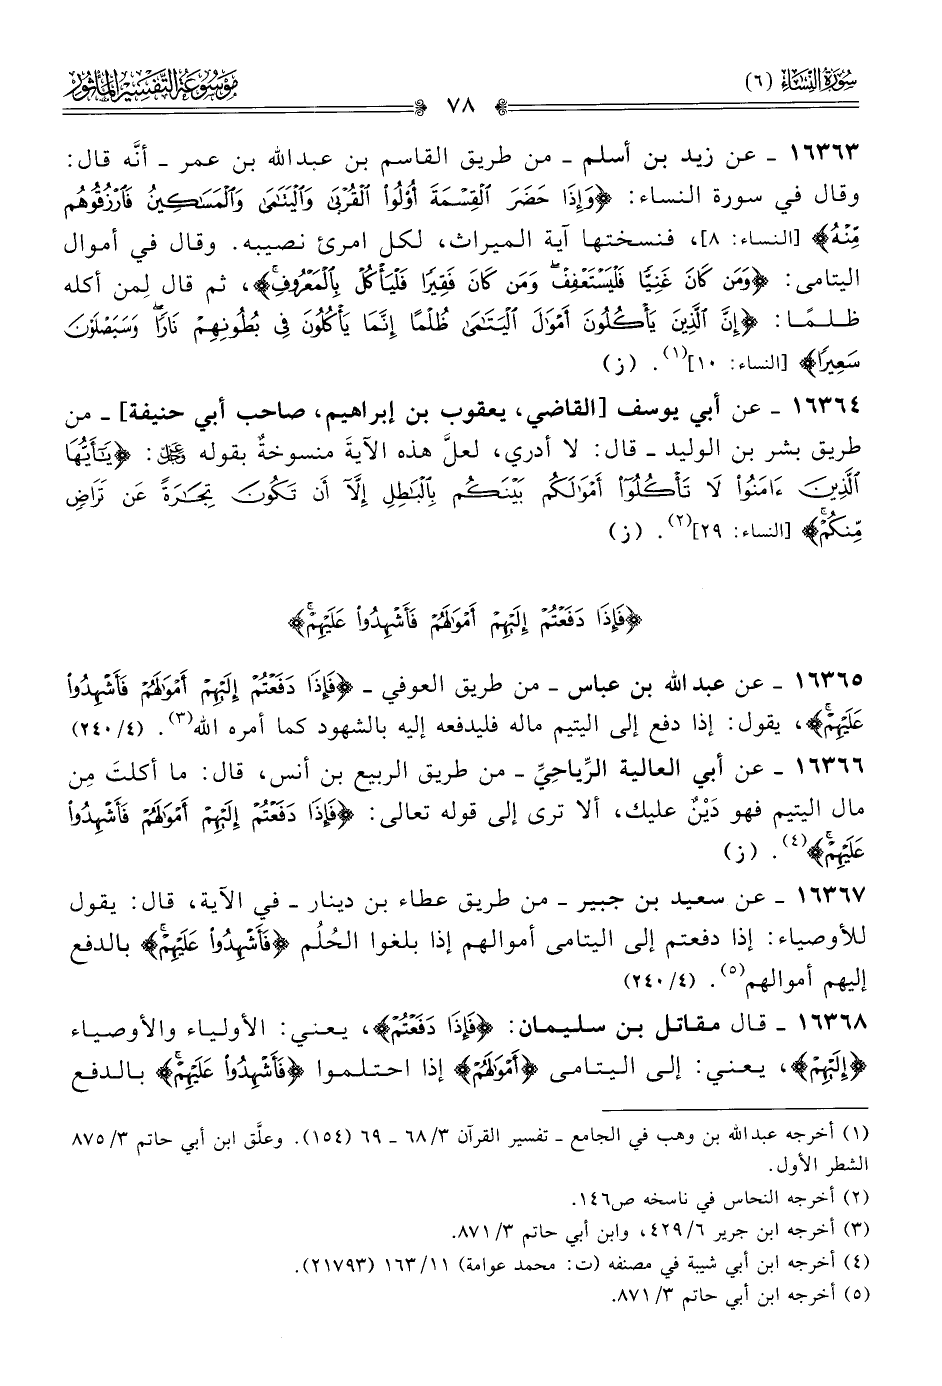 سُورَةُ النِّسَاءِ (٦)
٧٨
مَوْسُوعَةُ التَّفْسِيرِ المَأْثُور
١٦٣٦٣ ـ عن زيد بن أسلم ـ من طريق القاسم بن عبدالله بن عمر ـ أنَّه قال:
وقال في سورة النساء: ﴿وَإِذَا حَضَرَ ٱلۡقِسۡمَةَ أُوْلُواْ ٱلۡقُرۡبَىٰ وَٱلۡيَتَٰمَىٰ وَٱلۡمَسَٰكِينُ فَٱرۡزُقُوهُم
مِّنۡهُ﴾ [النساء: ٨]، فنسختها آية الميراث، لكل امرئ نصيبه. وقال في أموال
اليتامى: ﴿وَمَن كَانَ غَنِيّٗا فَلۡيَسۡتَعۡفِفۡۖ وَمَن كَانَ فَقِيرٗا فَلۡيَأۡكُلۡ بِٱلۡمَعۡرُوفِۚ﴾، ثم قال لِمن أكله
ظلمًا: ﴿إِنَّ ٱلَّذِينَ يَأۡكُلُونَ أَمۡوَٰلَ ٱلۡيَتَٰمَىٰ ظُلۡمًا إِنَّمَا يَأۡكُلُونَ فِي بُطُونِهِمۡ نَارٗاۖ وَسَيَصۡلَوۡنَ
سَعِيرٗا﴾ [النساء: ١٠](١). (ز)
١٦٣٦٤ ـ عن أبي يوسف [القاضي، يعقوب بن إبراهيم، صاحب أبي حنيفة] ـ من
طريق بشر بن الوليد ـ قال: لا أدري، لعلَّ هذه الآيةَ منسوخةٌ بقوله عز وجل: ﴿يَٰٓأَيُّهَا
ٱلَّذِينَ ءَامَنُواْ لَا تَأۡكُلُوٓاْ أَمۡوَٰلَكُم بَيۡنَكُم بِٱلۡبَٰطِلِ إِلَّآ أَن تَكُونَ تِجَٰرَةً عَن تَرَاضٖ
مِّنكُمۡۚ﴾ [النساء: ٢٩](٢). (ز)
﴿فَإِذَا دَفَعۡتُمۡ إِلَيۡهِمۡ أَمۡوَٰلَهُمۡ فَأَشۡهِدُواْ عَلَيۡهِمۡۚ﴾
١٦٣٦٥ ـ عن عبدالله بن عباس ـ من طريق العوفي ـ ﴿فَإِذَا دَفَعۡتُمۡ إِلَيۡهِمۡ أَمۡوَٰلَهُمۡ فَأَشۡهِدُواْ
عَلَيۡهِمۡۚ﴾، يقول: إذا دفع إلى اليتيم ماله فليدفعه إليه بالشهود كما أمره الله(٣). (٤/ ٢٤٠)
١٦٣٦٦ ـ عن أبي العالية الرِّياحِيِّ ـ من طريق الربيع بن أنس، قال: ما أكلتَ مِن
مال اليتيم فهو دَيْنٌ عليك، ألا ترى إلى قوله تعالى: ﴿فَإِذَا دَفَعۡتُمۡ إِلَيۡهِمۡ أَمۡوَٰلَهُمۡ فَأَشۡهِدُواْ
عَلَيۡهِمۡۚ﴾(٤). (ز)
١٦٣٦٧ ـ عن سعيد بن جبير ـ من طريق عطاء بن دينار ـ في الآية، قال: يقول
للأوصياء: إذا دفعتم إلى اليتامى أموالهم إذا بلغوا الحُلُم ﴿فَأَشۡهِدُواْ عَلَيۡهِمۡۚ﴾ بالدفع
إليهم أموالهم(٥). (٤/ ٢٤٠)
١٦٣٦٨ ـ قال مقاتل بن سليمان: ﴿فَإِذَا دَفَعۡتُمۡ﴾، يعني: الأولياء والأوصياء
﴿إِلَيۡهِمۡ﴾، يعني: إلى اليتامى ﴿أَمۡوَٰلَهُمۡ﴾ إذا احتلموا ﴿فَأَشۡهِدُواْ عَلَيۡهِمۡۚ﴾ بالدفع
(١) أخرجه عبدالله بن وهب في الجامع ـ تفسير القرآن ٣/ ٦٨ ـ ٦٩ (١٥٤). وعلَّق ابن أبي حاتم ٣/ ٨٧٥
الشطر الأول.
(٢) أخرجه النحاس في ناسخه ص١٤٦.
(٣) أخرجه ابن جرير ٦/ ٤٢٩، وابن أبي حاتم ٣/ ٨٧١.
(٤) أخرجه ابن أبي شيبة في مصنفه (ت: محمد عوامة) ١١/ ١٦٣ (٢١٧٩٣).
(٥) أخرجه ابن أبي حاتم ٣/ ٨٧١.